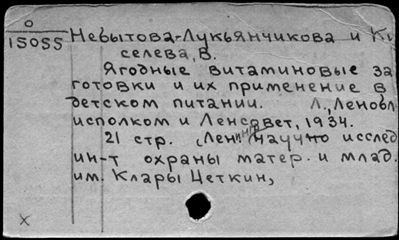 О
15055
Невытова-Лукьянчикова и Ки
селева, В.
Ягодные витаминовые за
готовки и их применение в
детском питании. Л., Леновл
исполком и Ленсовет, 1934.
21 стр. (Ленингр научно исслед
ин-т охраны матер. и млад.
им. Клары Цеткин,
х